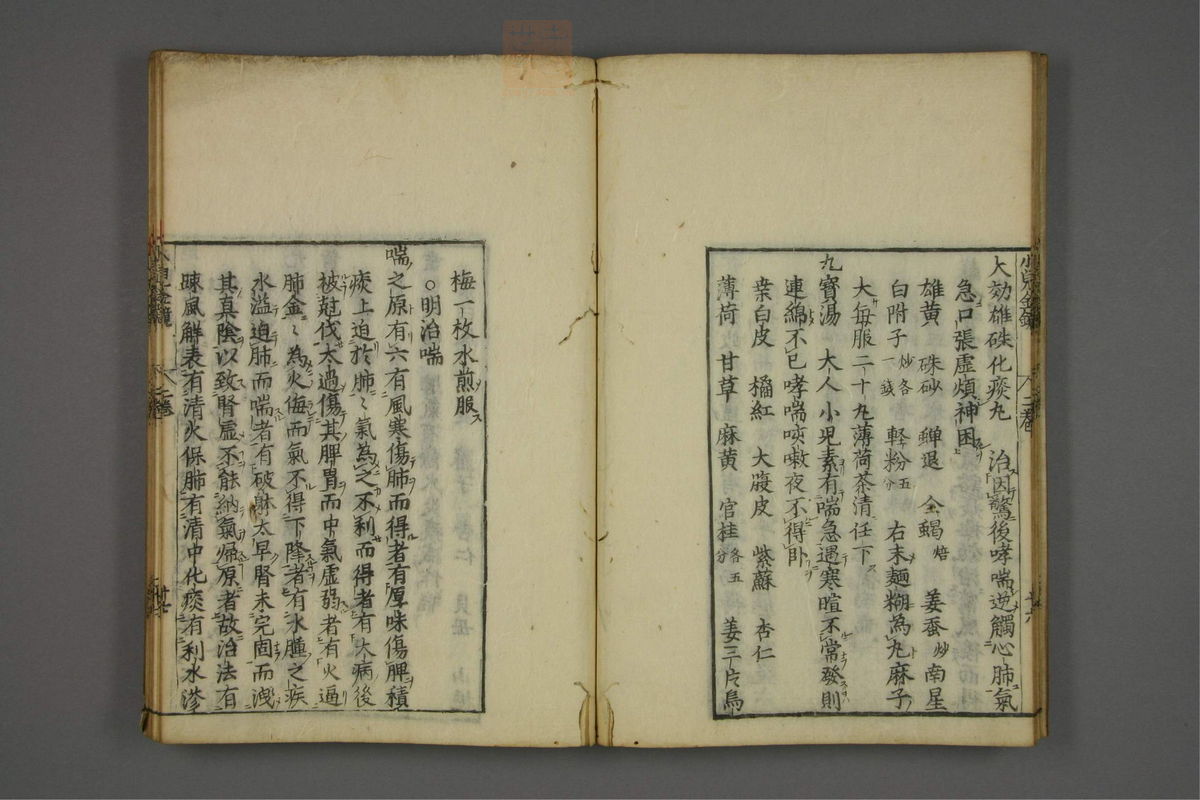 大効雄硃化痰丸　治因驚後哮喘逆觸心肺氣
急口張虛煩神困
雄黄　硃砂　蟬退　全蝎焙　姜蚕炒　南星
白附子炒各一錢　軽粉五分　右末麵糊為丸麻子
大毎服二十丸薄荷茶清任下
九寳湯　大人小児素有喘急遇寒暄不常發則
連綿不已哮喘咳嗽夜不得卧
桒白皮　橘紅　大腹皮　紫蘇　杏仁
薄荷　甘草　麻黄　官桂各五分　姜三片烏
梅一枚水煎服
○明治喘
喘之原有六有風寒傷肺而得者有厚味傷脾積
痰上迫於肺〻氣為之不利而得者有大病後
被尅伐太過傷其脾胃而中氣虛弱者有火逼
肺金〻為火侮而氣不得下降者有水腫之疾
水溢迫肺而喘者有破躰太早腎未完固而洩
其真陰以致腎虛不能納氣歸原者故治法有
踈風解表有清火保肺有清中化痰有利水滲